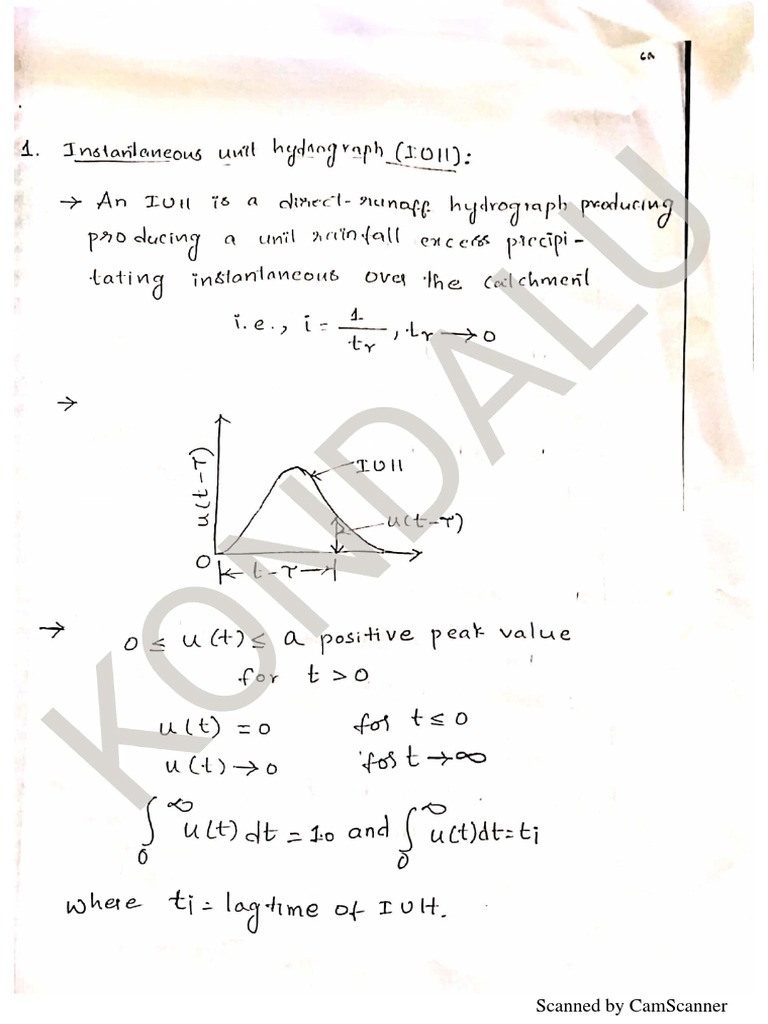 6a
1. Instantaneous unit hydrograph (IUH):
→ An IUH is a direct-runoff hydrograph producing
producing a unit rainfall excess precipi-
tating instantaneous over the catchment
i.e., i = 1/tr, tr → 0
→
IUH
u(t-τ)
u(t-τ)
0
t-τ
→ 0 ≤ u(t) ≤ a positive peak value
for t > 0
u(t) = 0 for t ≤ 0
u(t) → 0 for t → ∞
∫₀^∞ u(t) dt = 1.0 and ∫₀^∞ u(t)dt = ti
where ti = lag time of IUH.
KONDALU
Scanned by CamScanner